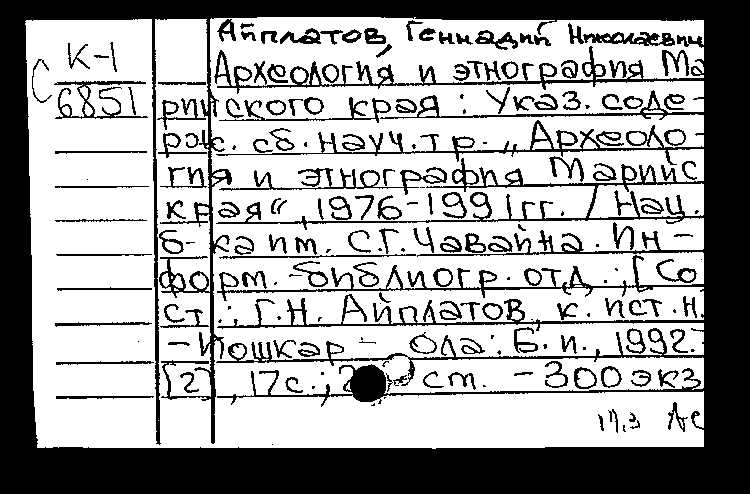 Айплатов, Геннадий Николаевич
С К-1
6851
Археология и этнография Ма
рийского края : Указ. соде-
рж. сб. науч. тр. „Археоло-
гия и этнография Марийс
края“, 1976-1991гг. / Нац.
б-ка им. С.Г. Чавайна. Ин-
форм.-библиогр. отд. ; [Со
ст.: Г.Н. Айплатов, к. ист. н.
- Йошкар - Ола: Б. и., 1992. -
[2], 17с.; см. - 300 экз
17.3